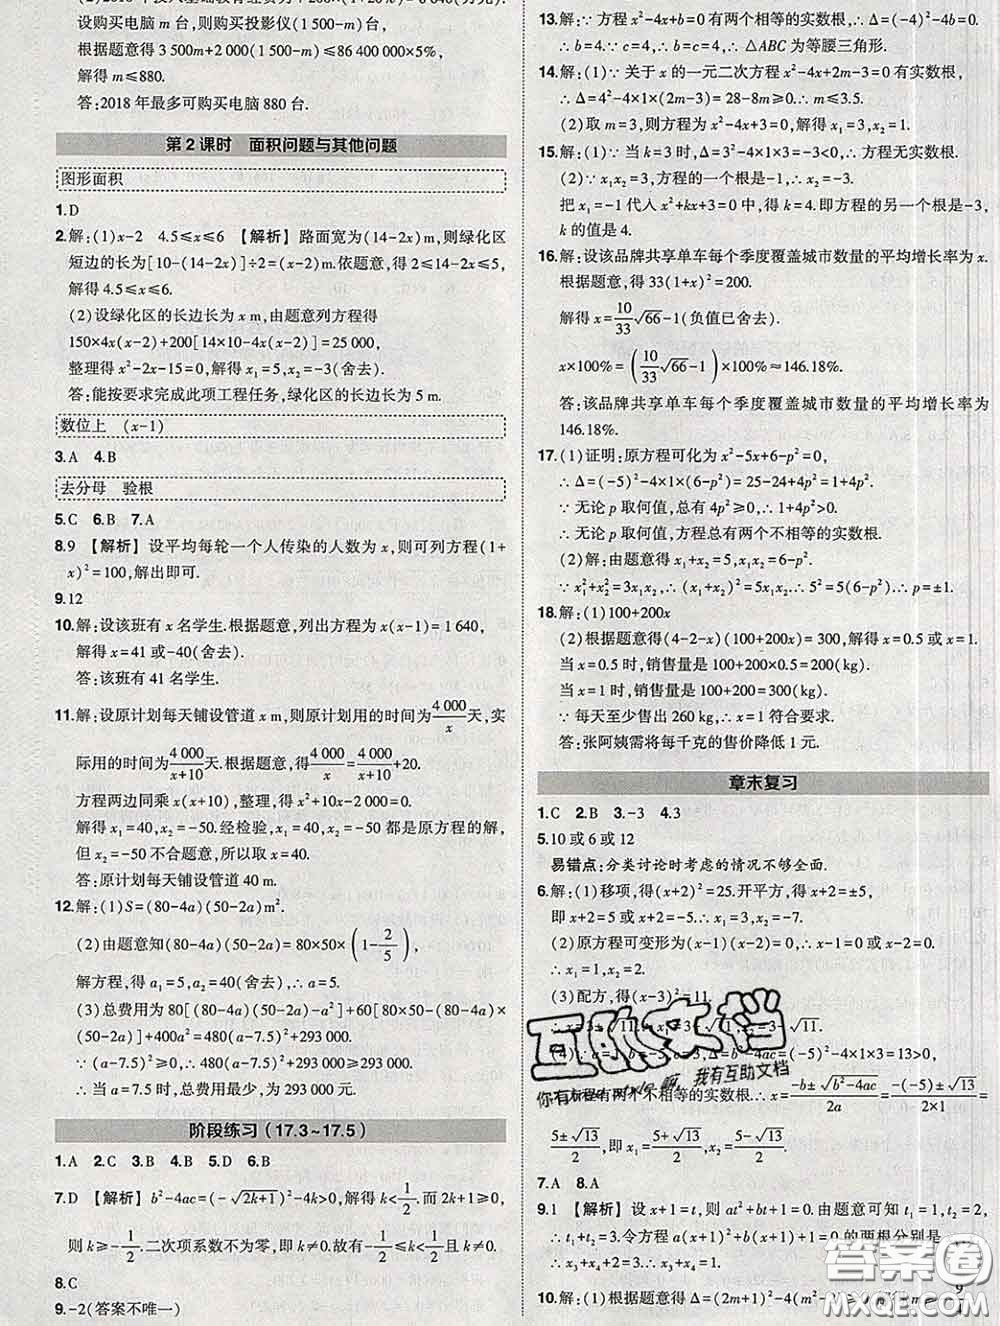 设购买电脑 m 台,则购买投影仪(1 500-m)台,
根据题意得 3 500m+2 000(1 500-m)≤86 400 000×5%,
解得 m≤880.
答:2018 年最多可购买电脑 880 台.
第 2 课时 面积问题与其他问题
图形面积
1.D
2.解:(1)x-2 4.5≤x≤6 【解析】路面宽为(14-2x)m,则绿化区
短边的长为[10-(14-2x)]÷2=(x-2)m.依题意,得 2≤14-2x≤5,
解得 4.5≤x≤6.
(2)设绿化区的长边长为 x m,由题意列方程得
150×4x(x-2)+200[14×10-4x(x-2)]=25 000,
整理得 x²-2x-15=0,解得 x₁=5,x₂=-3(舍去).
答:能按要求完成此项工程任务,绿化区长边长为 5 m.
数位上 (x-1)
3.A 4.B
去分母 验根
5.C 6.B 7.A
8.9 【解析】设平均每轮一个人传染的人数为 x,则可列方程(1+
x)²=100,解出即可.
9.12
10.解:设该班有 x 名学生.根据题意,列出方程为 x(x-1)=1 640,
解得 x=41 或-40(舍去).
答:该班有 41 名学生.
11.解:设原计划每天铺设管道 x m,则原计划用的时间为4 000/x天,实
际用的时间为4 000/(x+10)天.根据题意,得4 000/(x+10)=4 000/x+20.
方程两边同乘 x(x+10),整理,得 x²+10x-2 000=0.
解得 x₁=40,x₂=-50.经检验,x₁=40,x₂=-50 都是原方程的解,
但 x=-50 不合题意,所以取 x=40.
答:原计划每天铺设管道 40 m.
12.解:(1)S=(80-4a)(50-2a)m².
(2)由题意知(80-4a)(50-2a)=80×50×(1-2/5),
解方程,得 a₁=5,a₂=40(舍去),∴a=5.
(3)总费用为 80[(80-4a)(50-2a)]+60[80×50-(80-4a)×
(50-2a)]=480(a-7.5)²+293 000.
∵(a-7.5)²≥0,∴480(a-7.5)²+293 000≥293 000.
∴当 a=7.5 时,总费用最少,为 293 000 元.
阶段练习(17.3~17.5)
1.A 2.C 3.B 4.B 5.D 6.B
7.D 【解析】b²-4ac=(-√(2k+1))²-4k>0,解得 k<1/2.而 2k+1≥0,
则 k≥-1/2.二次项系数不为零,即 k≠0.故有-1/2≤k<1/2且 k≠0.
8.C
9.-2(答案不唯一)
13.解:∵方程 x²-4x+b=0 有两个相等的实数根,∴Δ=(-4)²-4b=0.
∴b=4.∵c=4,∴b=c,∴△ABC 为等腰三角形.
14.解:(1)∵关于 x 的一元二次方程 x²-4x+2m-3=0 有实数根,
∴Δ=4²-4×1×(2m-3)=28-8m≥0,∴m≤3.5.
(2)取 m=3,则方程为 x²-4x+3=0,解得 x₁=3,x₂=1.
15.解:(1)∵当 k=3 时,Δ=3²-4×1×3=-3<0,∴方程无实数根.
(2)∵x₁x₂=3,方程的一个根是-1,∴另一个根是-3.
把 x₁=-1 代入 x²+kx+3=0 中,得 k=4.即方程的另一个根是-3,
k 的值是 4.
16.解:设该品牌共享单车每个季度覆盖城市数量的平均增长率为 x.
根据题意,得 33(1+x)²=200.
解得 x=10/33√66-1(负值已舍去).
x×100%=(10/33√66-1)×100%≈146.18%.
答:该品牌共享单车每个季度覆盖城市数量的平均增长率为
146.18%.
17.(1)证明:原方程可化为 x²-5x+6-p²=0,
∴Δ=(-5)²-4×1×(6-p²)=25-24+4p²=1+4p².
∵无论 p 取何值,总有 4p²≥0,∴1+4p²>0.
∴无论 p 取何值,方程总有两个不相等的实数根.
(2)解:由题意得 x₁+x₂=5,x₁x₂=6-p².
∵x₁²+x₂²=3x₁x₂,∴(x₁+x₂)²=5x₁x₂,∴5²=5(6-p²),∴p=±1.
18.解:(1)100+200x
(2)根据题意得(4-2-x)(100+200x)=300,解得 x=0.5 或 x=1.
当 x=0.5 时,销售量是 100+200×0.5=200(kg).
当 x=1 时,销售量是 100+200=300(kg).
∵每天至少售出 260 kg,∴x=1 符合要求.
答:张阿姨需将每千克的售价降低 1 元.
章末复习
1.C 2.B 3.-3 4.3
5.10 或 6 或 12
易错点:分类讨论时考虑的情况不够全面.
6.解:(1)移项,得(x+2)²=25.开平方,得 x+2=±5,
即 x+2=5 或 x+2=-5.∴x₁=3,x₂=-7.
(2)原方程可变形为(x-1)(x-2)=0.∴x-1=0 或 x-2=0.
∴x₁=1,x₂=2.
(3)配方,得(x-3)²=11.
∴x=3±√11.∴x₁=3+√11,x₂=3-√11.
(4)∵a=1,b=-5,c=3,∴Δ=b²-4ac=(-5)²-4×1×3=13>0,
∴方程有两个不相等的实数根.∴x=(-b±√(b²-4ac))/2a=(-(-5)±√13)/(2×1)=
(5±√13)/2,即 x₁=(5+√13)/2,x₂=(5-√13)/2.
7.A 8.A
9.1 【解析】设 x+1=t,则 at²+bt+1=0.由题意可知 t₁=1,t₂=2,
∴t₁+t₂=3.令方程 a(x+1)²+b(x+1)+1=0 的两根分别是
x₃,x₄.∴x₃+1+x₄+1=3,∴x₃+x₄=1.
10.解:(1)根据题意得 Δ=(2m+1)²-4(m²-
互助文档
我有互助文档
答案圈
MXQE.COM